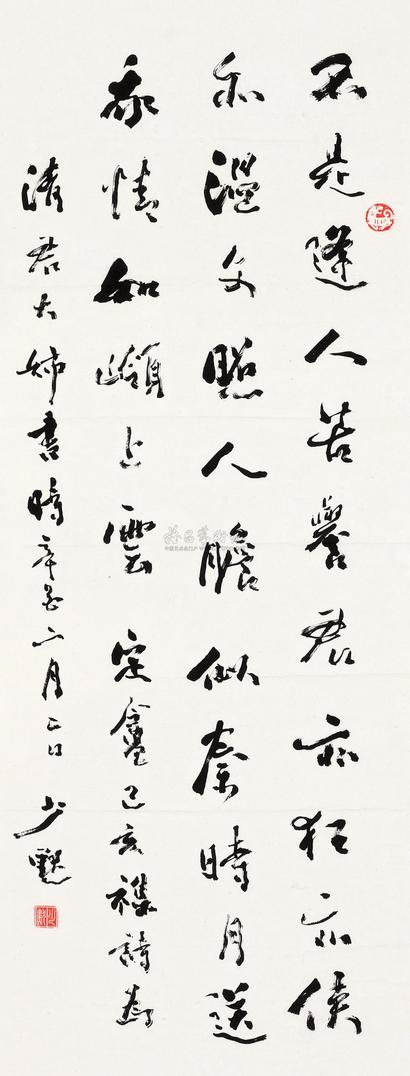 不是逢人苦譽君亦狂亦俠
亦溫文照人膽似秦時月送
我情如嶺上雲 定盦己亥雜詩為
清君大姊書時辛亥六月 少默